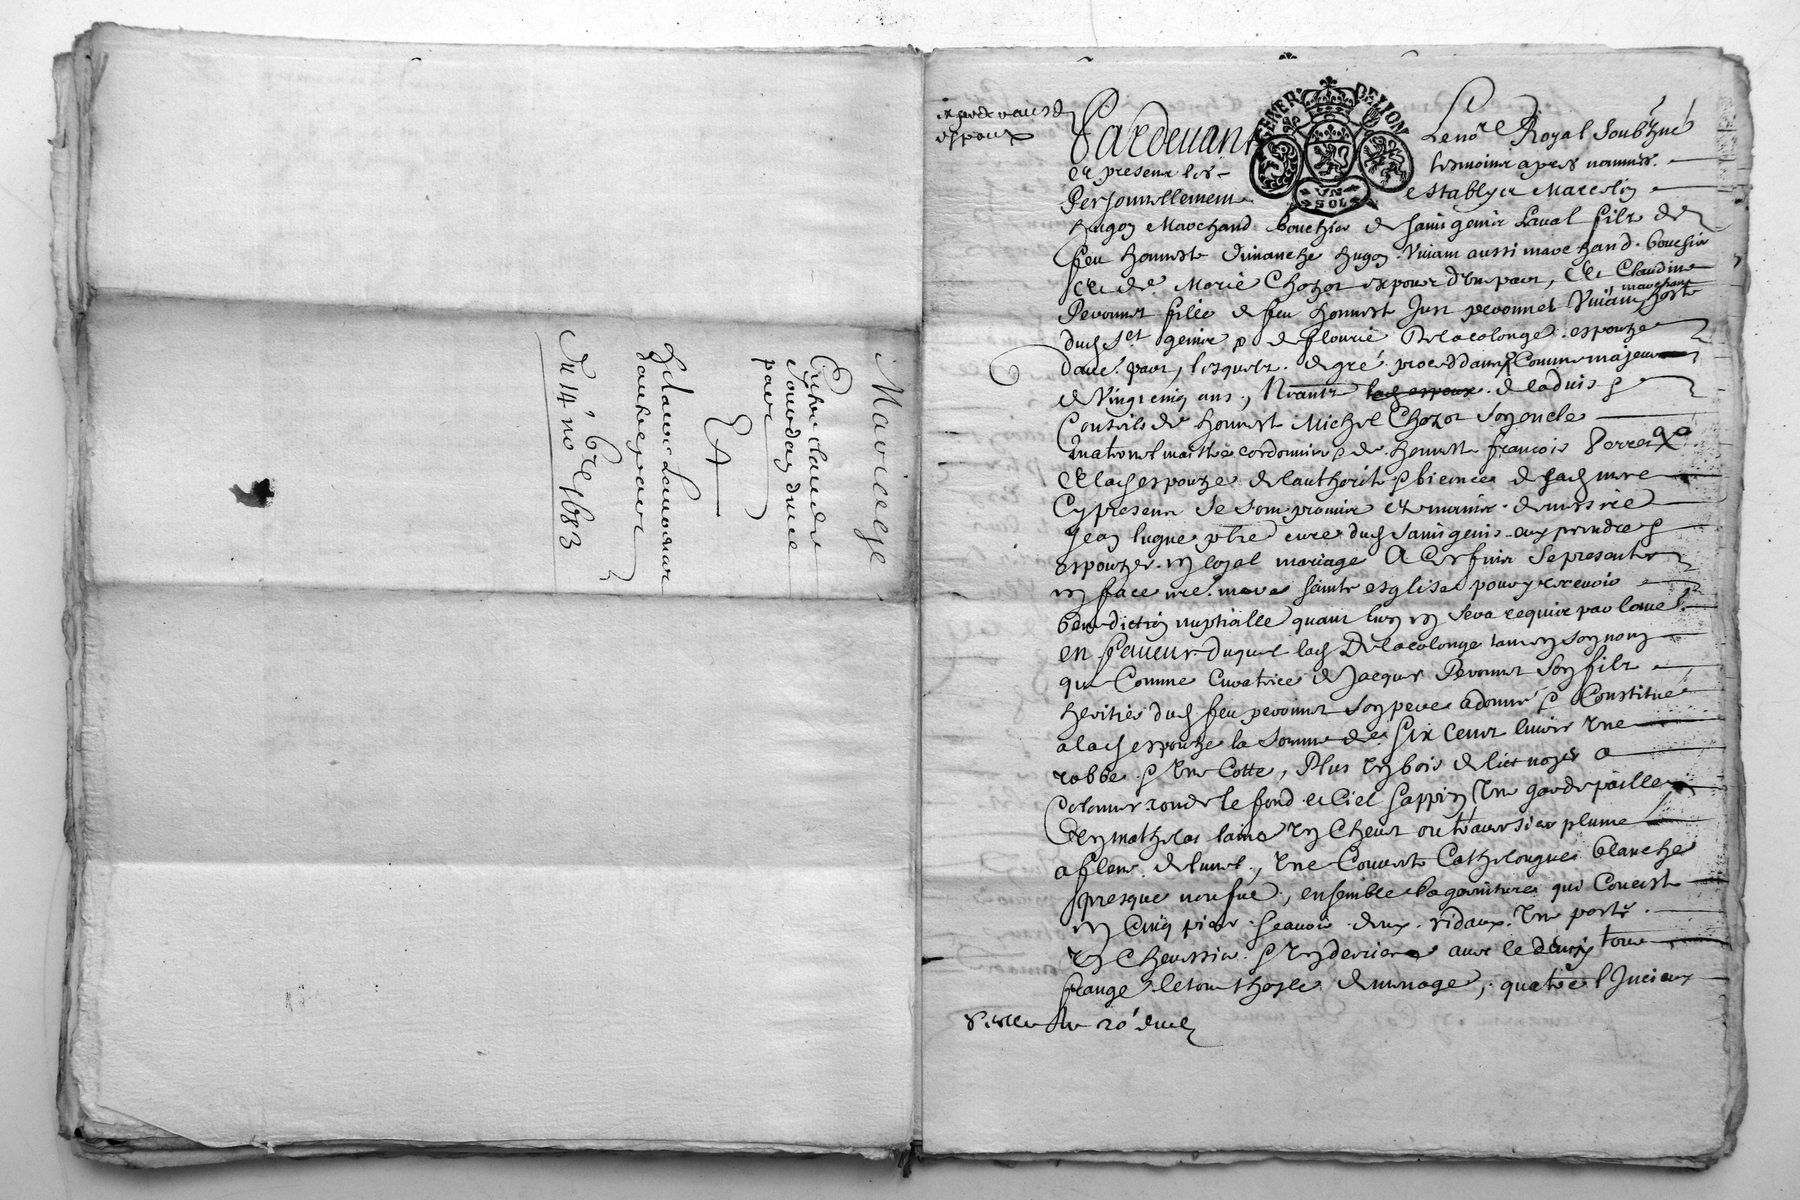 Mariage
Entre claude
Jourdan d'une
part
Et
d'autre part
Du 14e 9bre 1683
espoux
GENER DE LION
UN
SOL
Pardevant Le nore Royal Soubzné
et presens les tesmoins apres nommes
Personnellement establys Marcelin
hugon Marchand bouchier de sainct genis Laval filz de
feu honneste dimanche hugon vivant aussi marchand bouchier
et de Marie Chozot espoux d'une part, Et Claudine
Peronnet fille de feu honneste Just peronnet vivant hoste
marchant
dud St genis & de flourie Delacolonge espouze
d'autre part, lesquels de gré proceddants Comme majeurs
de vingt cinq ans, led espoux de l'advis &
Conseils de honneste Michel Chozot son oncle
maternel maistre cordonnier & de honneste francois
Et lad espouze de l'authorité & licence de sad mere
Cy presente se sont promis et
Jean lugne ptre curé dud sainct genis aux prendre &
espouzer en loyal mariage A ces fins se presenter
en face nre mere saincte esglise pour y recevoir
benediction nuptialle quant l'un en sera requis par l'autre
en faveur duquel lad Delacolonge tant en son nom
que Comme Curatrice de Jacques Peronnet son filz
heritier dud feu peronnet son pere a donné & Constitué
a lad espouze la somme de six cents livres une
robbe & une Cotte, Plus un bois de lict noyer a
Colonnes rondes le fond et Ciel sappin une gardepaille
un mathelas laine un Chevet ou traversier plume
une Couverte Cathelongne blanche
presque neufve, ensemble la garniture qui Consiste
en Cinq pieces scavoir deux ridaux une porte
un & un derriere avec le dessus tout
frange le tout de menage, quatre linceux